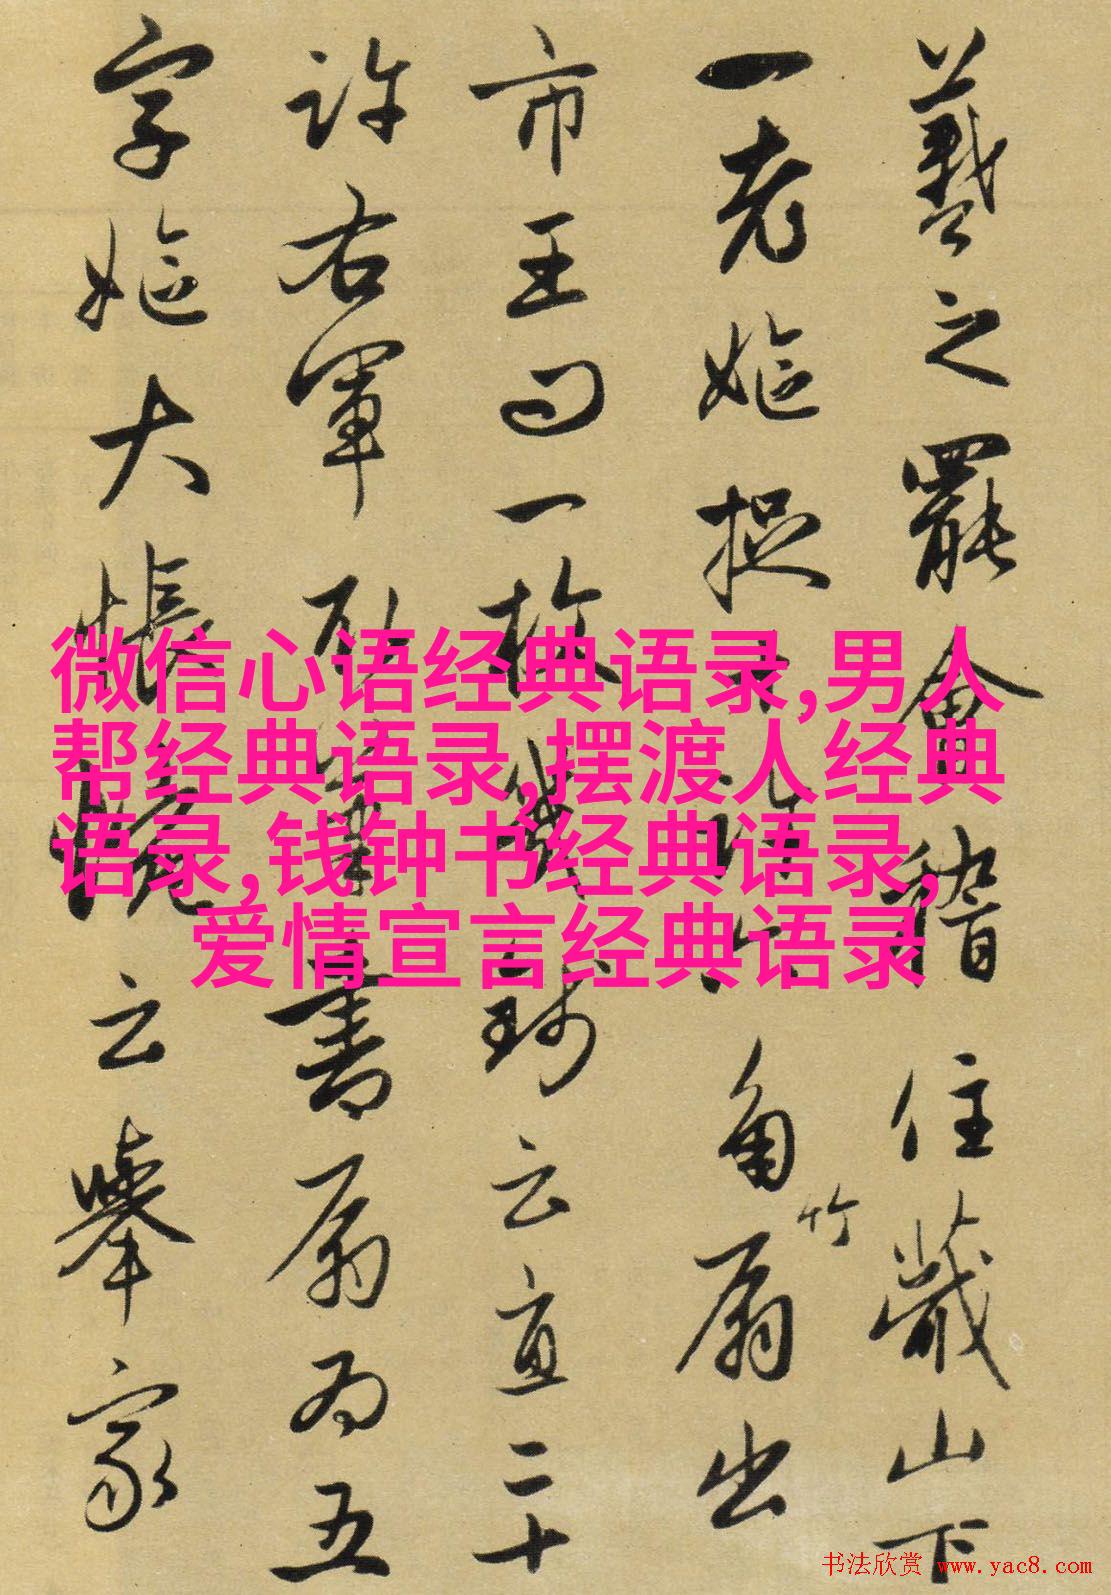 羲之罷會稽住蕺山下
一老嫗捉十許六角竹扇出
市王問一枚幾錢云直二十
許右軍取筆書扇為五
字嫗大悵惋云舉家
微信心语经典语录,男人
帮经典语录,摆渡人经典
语录,钱钟书经典语录,
爱情宣言经典语录
书法欣赏 www.yac8.com